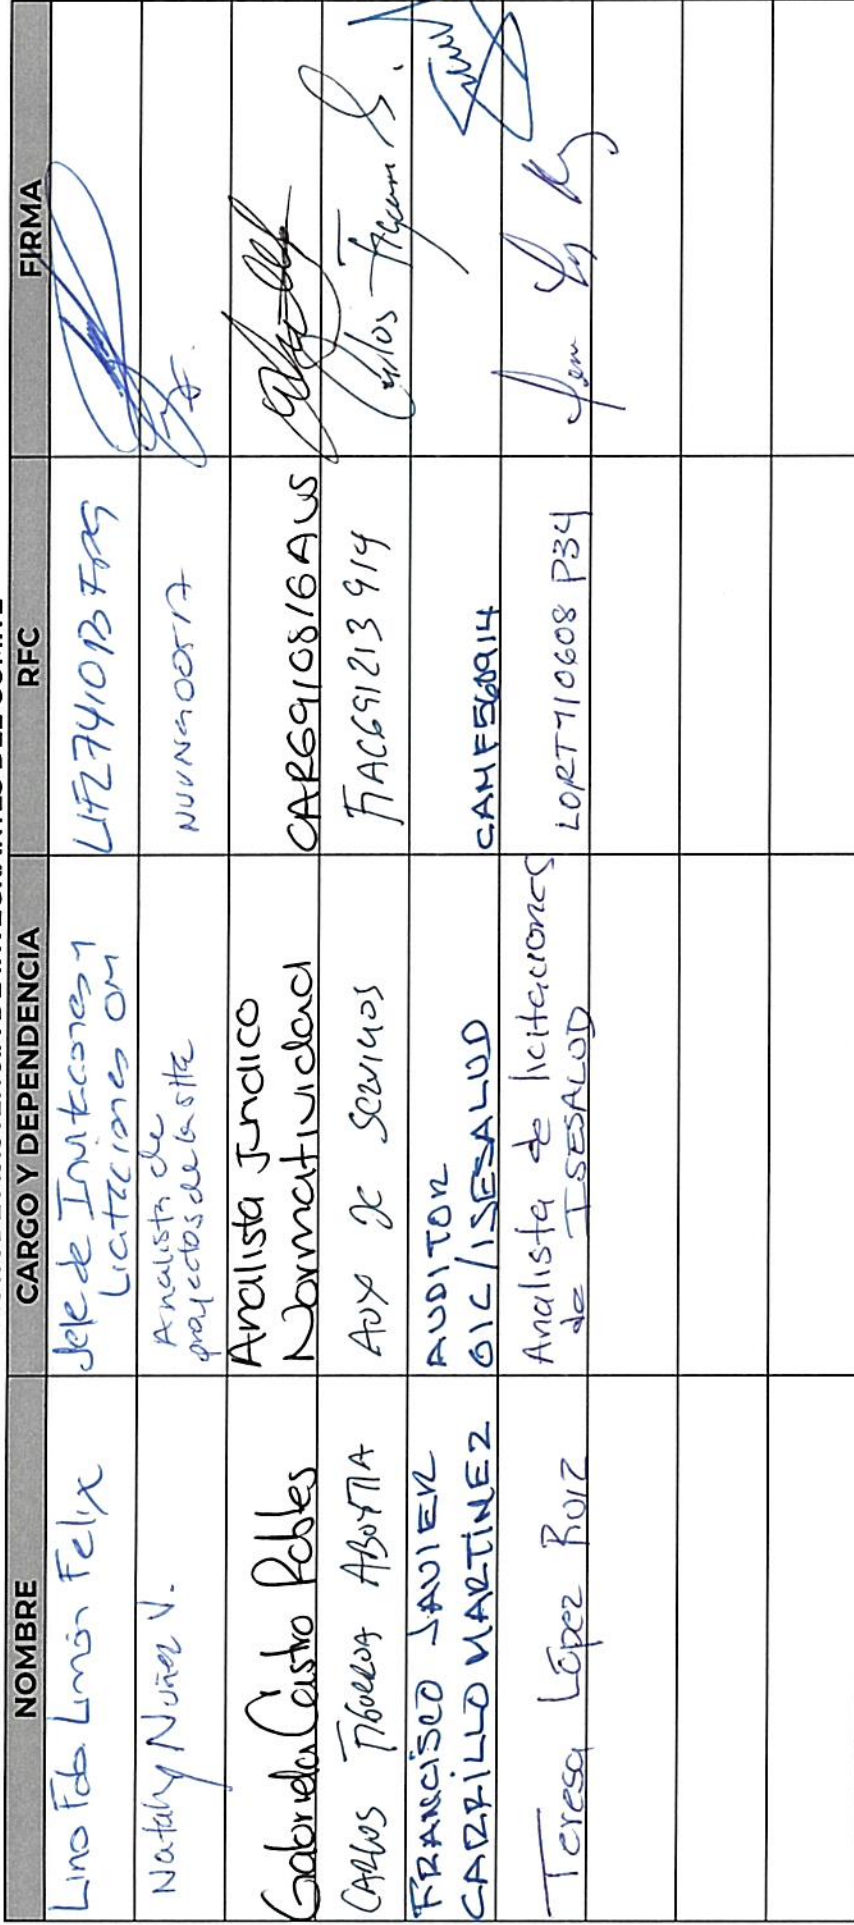 NOMBRE CARGO Y DEPENDENCIA RFC FIRMA
Lino Fab. Limón Felix
Jefe de Invitaciones y
Licitaciones OM
Nataly Nuñez V.
Analista de
proyectos de la
Gabriela Castro Robles
Analista Jurídico
Normatividad
CARG910816AWS
CARLOS
AUX DE SERVICIOS
FIAC691213 914
Carlos
FRANCISCO JAVIER
CARRILLO MARTINEZ
AUDITOR
OIC/ISESALUD
CAMF560914
Teresa López Ruiz
Analista de licitaciones
de ISESALUD
LORT710608 P34